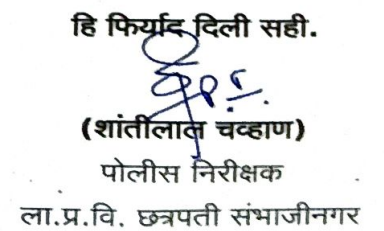 हि फिर्याद दिली सही.
(शांतीलाल चव्हाण)
पोलीस निरीक्षक
ला.प्र.वि. छत्रपती संभाजीनगर